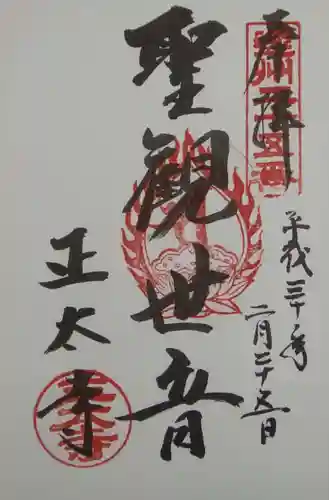 奉拝
平成三十年
二月二十五日
聖観世音
正太寺